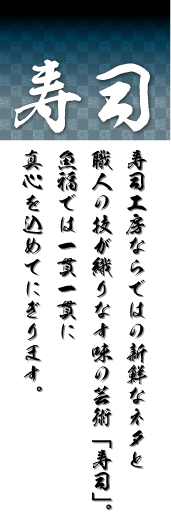 寿司
寿司工房ならではの新鮮なネタと
職人の技が織りなす味の芸術「寿司」。
魚福では一貫一貫に
真心を込めてにぎります。